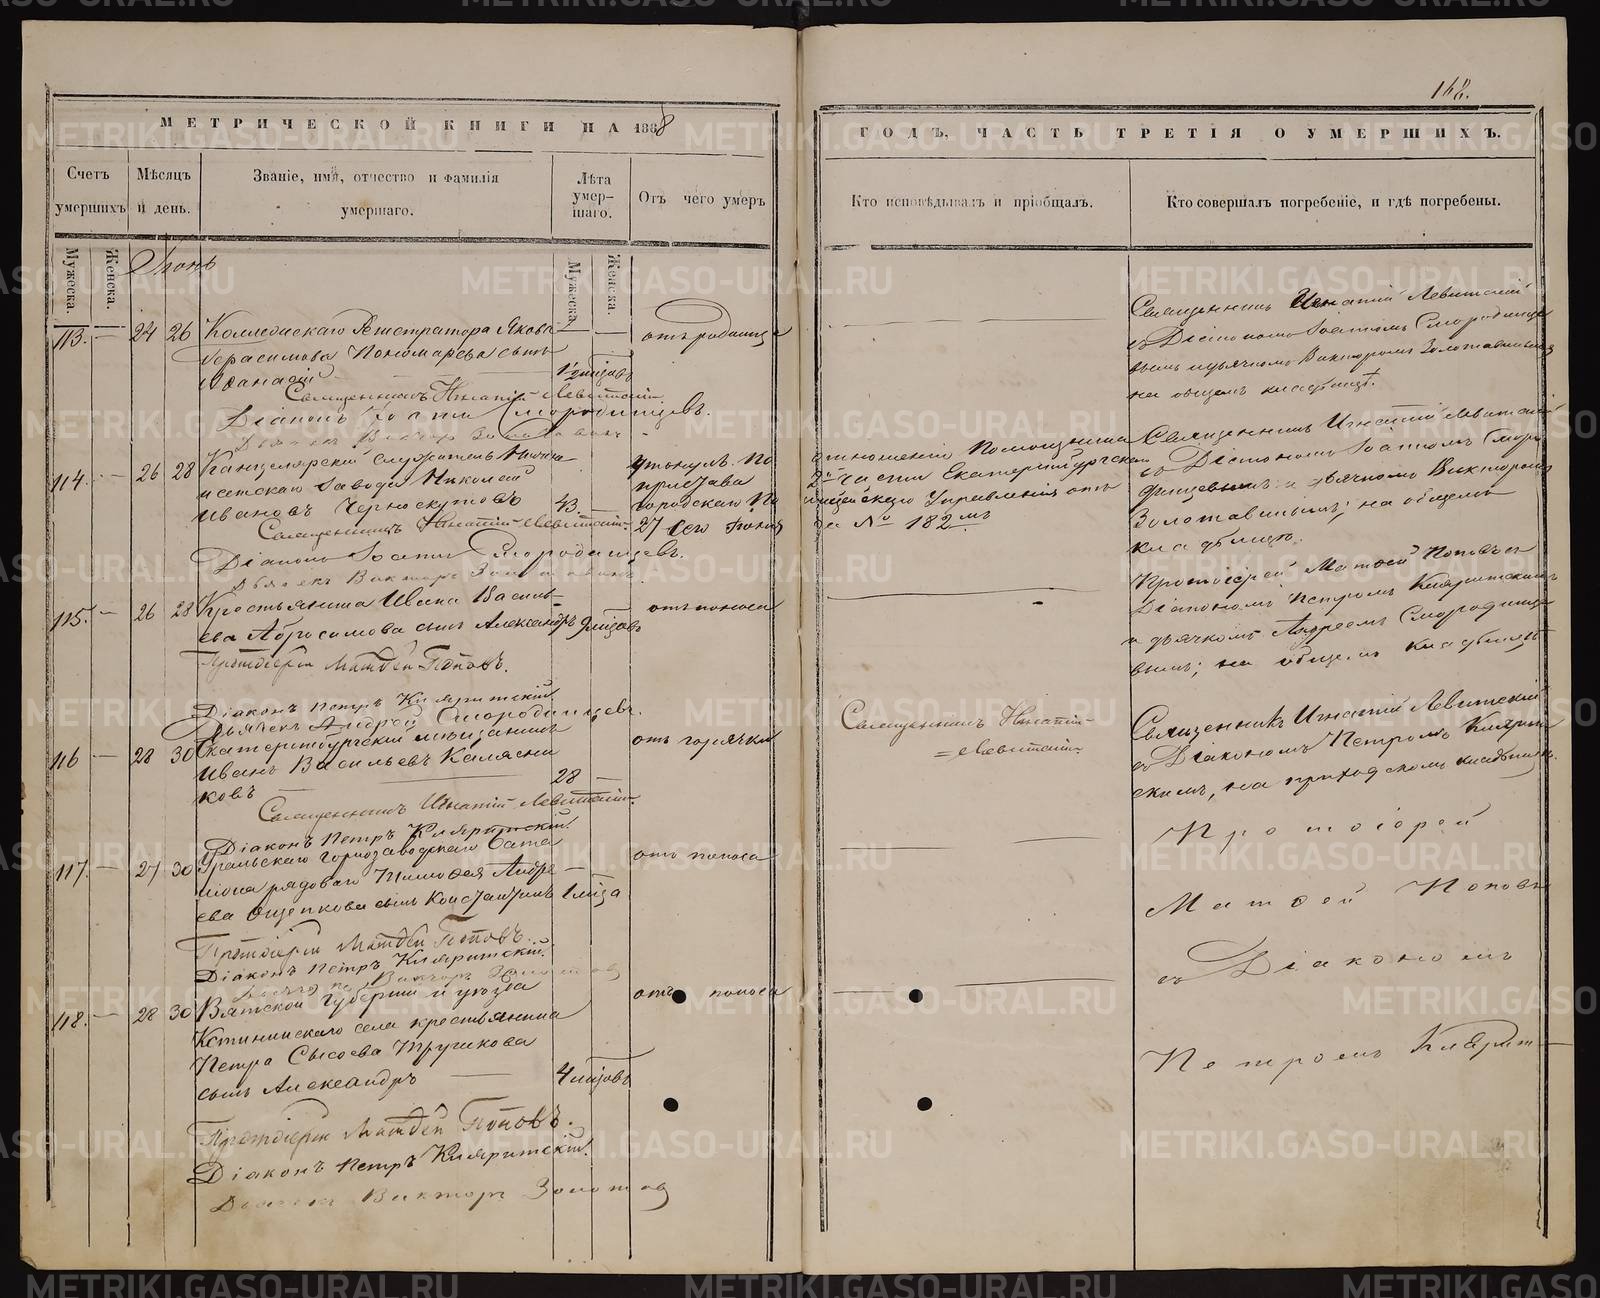 168.
МЕТРИЧЕСКОЙ КНИГИ НА 1868
ГОДЪ, ЧАСТЬ ТРЕТІЯ О УМЕРШИХЪ.
Счетъ умершихъ
Мѣсяцъ и день.
Званіе, имя, отчество и фамилія умершаго.
Лѣта умер-
шаго.
Отъ чего умеръ
Кто исповѣдывалъ и пріобщалъ.
Кто совершалъ погребеніе, и гдѣ погребены.
Мужеска.
Женска.
Мужеска.
Женска.
Іюнь
113. — 24 26
Коллежскаго Регистратора Яковъ
Герасимова Пономарева сынъ
Аѳанасій
1/2 мѣсяцъ
отъ родимца
Священникъ Игнатій Левитскій
Діаконъ Іоаннъ Смородинцевъ.
Священникъ Игнатій Левитскій
съ Діакономъ Іоанномъ Смородинце
вымъ и дьячкомъ Викторомъ Золотавинымъ
на общемъ кладбищѣ.
114. — 26 28
Канцелярскій служитель Нижне-
исетскаго завода Николай
Ивановъ Черноскутовъ
43. —
утонулъ. По
пристава
городскаго по
27 сего Іюня
отношенію Помощника
2й части Екатеринбургскаго
Управленія отъ
за № 182мъ
Священникъ Игнатій Левитскій.
Діаконъ Іоаннъ Смородинцевъ.
Дьячекъ Викторъ Золотавинъ.
Священникъ Игнатій Левитскій
съ Діакономъ Іоанномъ Сморо
динцевымъ и дьячкомъ Викторомъ
Золотавинымъ; на общемъ
кладбищѣ.
115. — 26 28
Крестьянина Ивана Василь-
ева Абросимова сынъ Александръ
9 мѣсяцовъ
отъ поноса
Протоіерей Матѳей Поповъ.
Діаконъ Петръ Кляритскій
Дьячекъ Андрей Смородинцевъ.
Протоіерей Матѳей Поповъ съ
Діакономъ Петромъ Кляритскимъ
и дьячкомъ Андреемъ Смородинце
вымъ; на общемъ кладбищѣ
116 — 28 30
Екатеринбургскій мѣщанинъ
Иванъ Васильевъ Калясни
ковъ
28 —
отъ горячки
Священникъ Игнатій
Левитскій
Священникъ Игнатій Левитскій.
Діаконъ Петръ Кляритскій.
Священникъ Игнатій Левитскій
съ Діакономъ Петромъ Клярит
скимъ, на приходскомъ кладбищѣ.
117. — 27 30
Уральскаго горнозаводскаго бата
ліона рядоваго Тимоѳея Андре
ева Ощепкова сынъ Константинъ
1 мѣсяца
отъ поноса
Протоіерей Матѳей Поповъ.
Діаконъ Петръ Кляритскій.
Протоіерей
Матѳей Поповъ
съ Діакономъ
Петромъ Клярит
118. — 28 30
Вятской губерніи и уѣзда
Кстининскаго села крестьянина
Петра Сысоева Тручкова
сынъ Александръ
4 мѣсяцовъ
отъ поноса
Протоіерей Матѳей Поповъ.
Діаконъ Петръ Кляритскій.
Дьячекъ Викторъ Золотав
METRIKI.GASO-URAL.RU